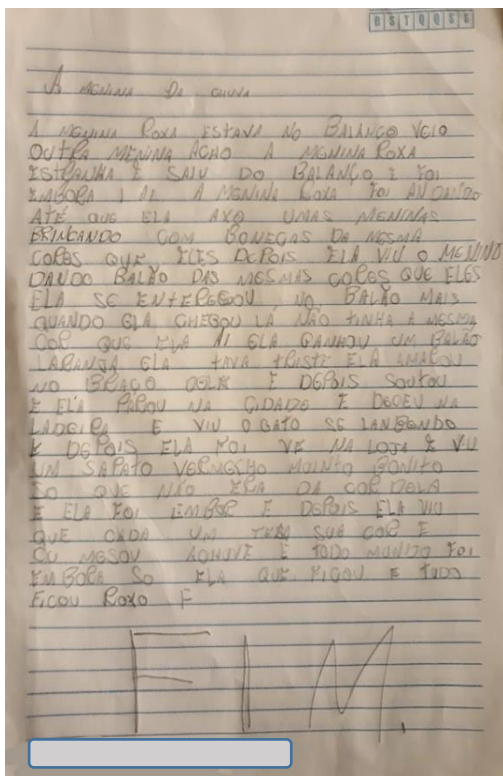 D S T Q Q S S
A MENINA DA CHUVA
A MENINA ROXA ESTAVA NO BALANÇO VEIO
OUTRA MENINA ACHO A MENINA ROXA
ESTRANHA E SAIU DO BALANÇO E FOI
EMBORA I AI A MENINA ROXA FOI ANDANDO
ATÉ QUE ELA AXO UMAS MENINAS
BRINCANDO COM BONECAS DA MESMA
CORES QUE ELES DEPOIS ELA VIU O MENINO
DANDO BALÃO DAS MESMAS CORES QUE ELES
ELA SE ENTEREÇOU, NO, BALÃO MAIS
QUANDO ELA CHEGOU LÁ NÃO TINHA A MESMA
COR QUE ELA AI ELA GANHOU UM BALÃO
LARANJA ELA TAVA TRISTE ELA AMAROU
NO BRAÇO DELA E DEPOIS SOUTOU
E ELA PAROU NA CIDADE E DECEU NA
LADEIRA E VIU O GATO SE LANBENDO
E DEPOIS ELA FOI VE NA LOJA E VIU
UM SAPATO VERMECHO MUINTO BONITO
SO QUE NÃO ERA DA COR DELA
E ELA FOI EMBOR E DEPOIS ELA VIU
QUE CADA UM TEM SUA COR E
COMESOU ACHUVE E TODO MUNDO FOI
EMBORA SO ELA QUE FICOU E TUDO
FICOU ROXO F
FIM.